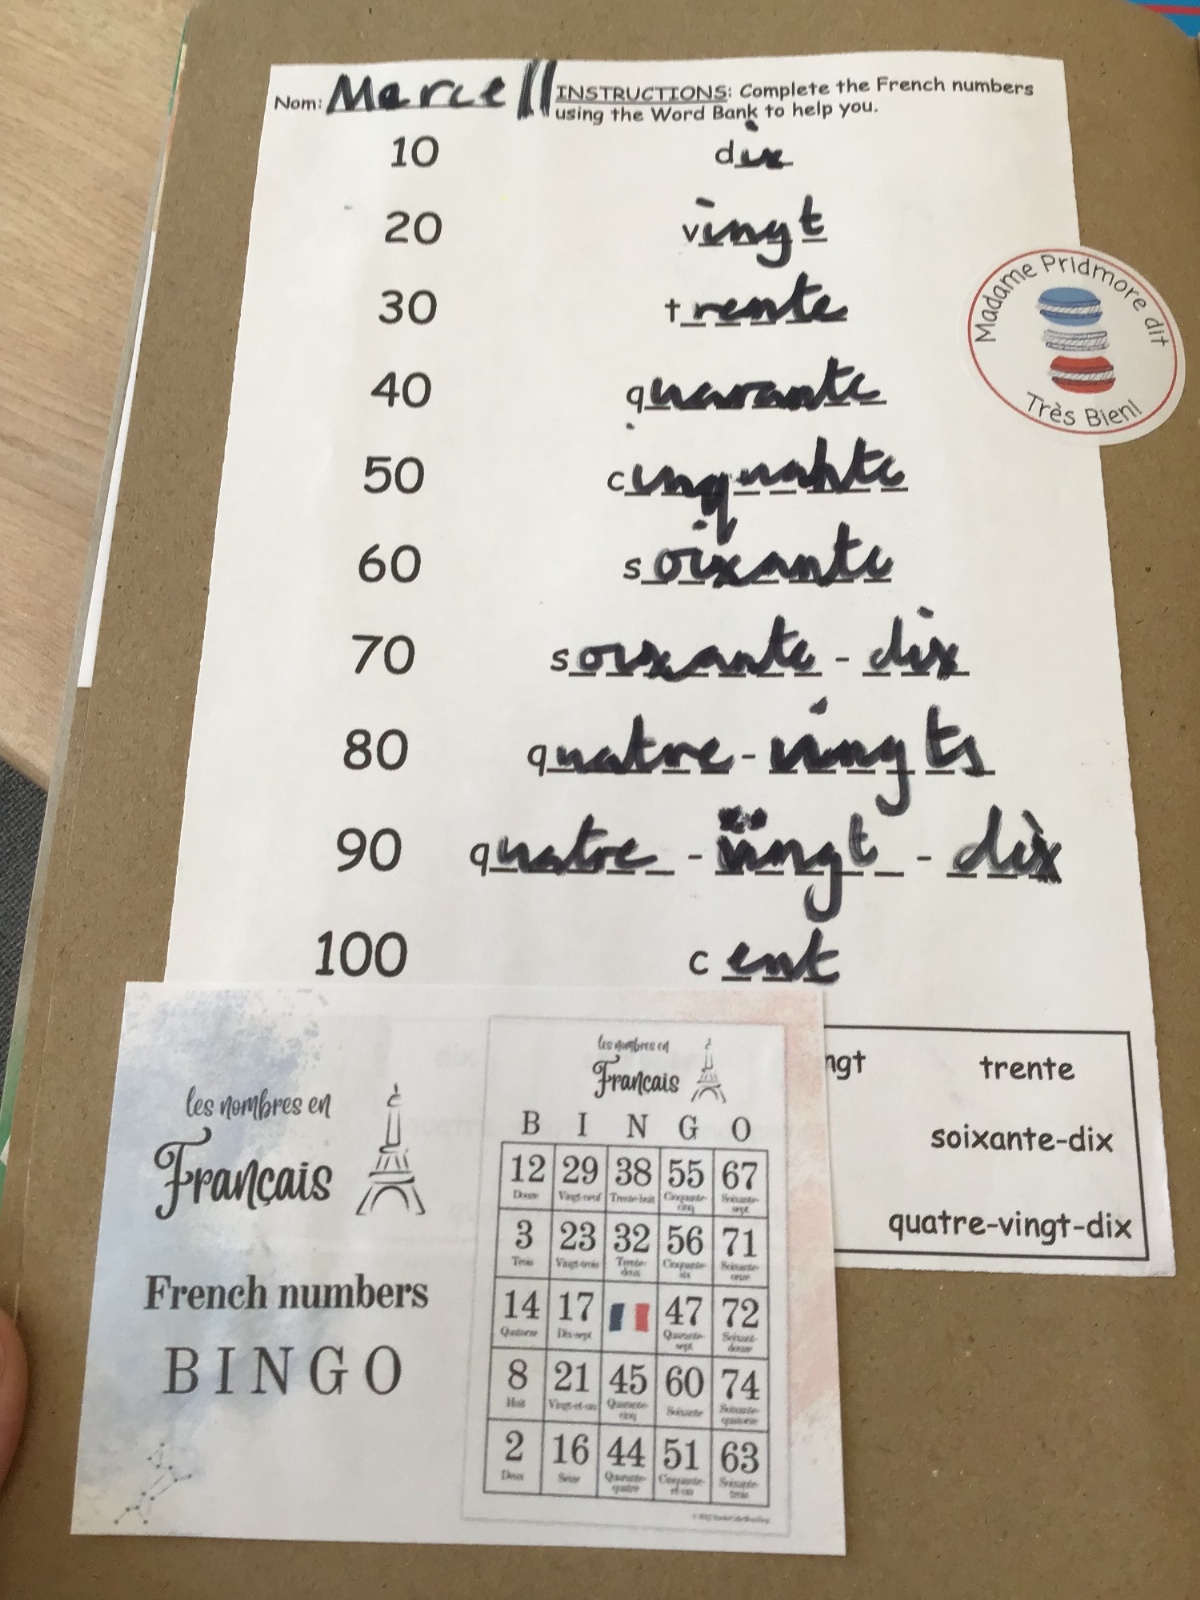 Nom: Marcell
INSTRUCTIONS: Complete the French numbers
using the Word Bank to help you.
10 dix
20 vingt
30 trente
40 quarante
50 cinquante
60 soixante
70 soixante-dix
80 quatre-vingts
90 quatre-vingt-dix
100 cent
Madame Pridmore dit
Très Bien!
ngt trente
soixante-dix
quatre-vingt-dix
les nombres en
Français
French numbers
BINGO
les nombres en
Français
B I N G O
12 29 38 55 67
Douze Vingt-neuf Trente-huit Cinquante-cinq Soixante-sept
3 23 32 56 71
Trois Vingt-trois Trente-deux Cinquante-six Soixante-onze
14 17 47 72
Quatorze Dix-sept Quarante-sept
8 21 45 60 74
Huit Vingt-et-un Quarante-cinq Soixante Soixante-quatorze
2 16 44 51 63
Deux Seize Quarante-quatre Cinquante-et-un Soixante-trois